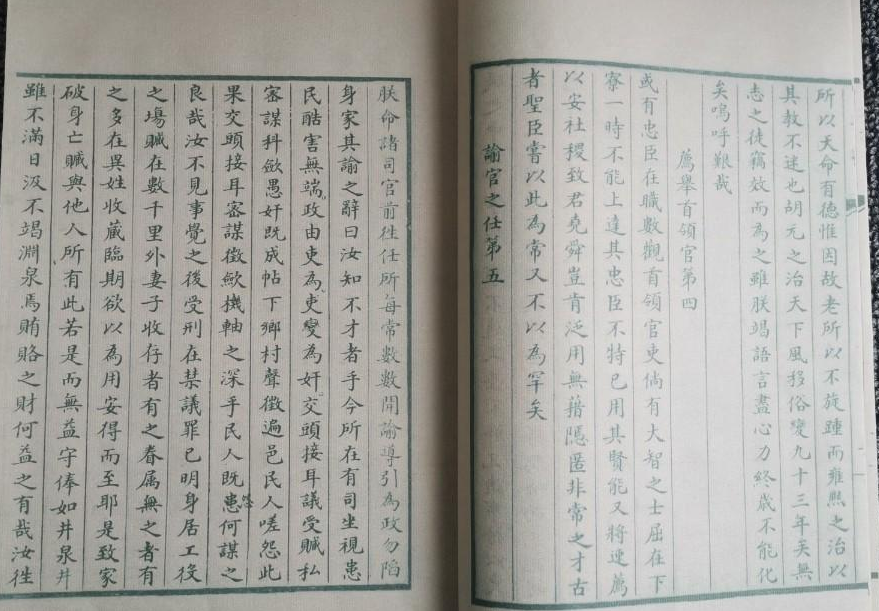 所以天命有德惟因故老所以不旋踵而雍熙之治以
其教不迷也胡元之治天下風移俗變九十三年矣無
志之徒竊效而為之雖朕竭語言盡心力終歲不能化
矣嗚呼艱哉
薦舉首領官第四
或有忠臣在職數觀首領官吏倘有大智之士屈在下
寮一時不能上達其忠臣不特已用其賢能又將速薦
以安社稷致君堯舜豈肯泛用無藉隱匿非常之才古
者聖臣嘗以此為常又不以為罕矣
諭官之任第五
朕命諸司官前徃任所每常數數開諭導引為政勿陷
身家其諭之辭曰汝知不才者乎今所在有司坐視患
民酷害無端政由吏為吏變為奸交頭接耳議受贓私
密謀科斂愚奸既成帖下鄉村聲徵遍邑民人嗟怨此
果交頭接耳密謀徵歛機軸之深乎民人既患何謀之
良哉汝不見事覺之後受刑在禁議罪已明身居工役
之塲贓在數千里外妻子收存者有之眷属無之者有
之多在異姓收藏臨期欲以為用安得而至耶是致家
破身亡贓與他人所有此若是而無益守俸如井泉井
雖不滿日汲不竭淵泉焉賄賂之財何益之有哉汝徃